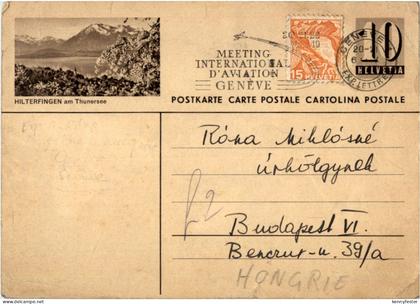 HILTERFINGEN am Thunersee
MEETING
INTERNATIONAL
D'AVIATION
GENÈVE
15
GENÈVE
10
HELVETIA
POSTKARTE CARTE POSTALE CARTOLINA POSTALE
Róna Miklósné
úrhölgynek
Budapest VI.
Benczur-u. 39/a
HONGRIE
kennyfester